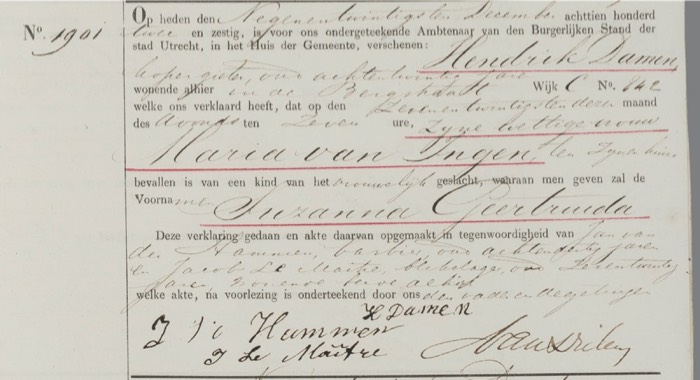 No. 1901
Op heden den Negenentwintigsten December achttien honderd
twee en zestig, is voor ons ondergeteekende Ambtenaar van den Burgerlijken Stand der
stad Utrecht, in het Huis der Gemeente, verschenen:
Hendrik Damen,
kopergieter, oud achtentwintig jaren
wonende alhier in de Bergstraat Wijk C No. 842
welke ons verklaard heeft, dat op den Zevenentwintigsten dezer maand
des Avonds ten Zeven ure, Zyne wettige vrouw
Maria van Ingen, ten Zynen huize
bevallen is van een kind van het vrouwelijk geslacht, waaraan men geven zal de
Voorname Suzanna Geertruida
Deze verklaring gedaan en akte daarvan opgemaakt in tegenwoordigheid van Jan van
der Hammen, barbier, oud achtendertig jaren
en Jacob Le Maitre, oud Zevenentwintig
jaren, wonende beide alhier
welke akte, na voorlezing is onderteekend door ons den vader en de getuigen
H Damen
J v d Hammen
J Le Maître